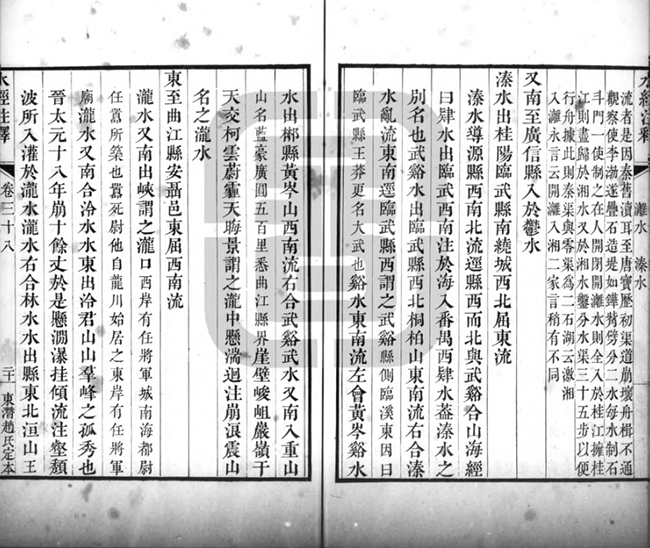 水經注釋
灕水 溱水
流者是因秦舊瀆耳至唐寶歷初渠道崩壞舟楫不通
觀察使李渤遂疊石造堤如鏵觜劈分二水每水制石
斗門一使制之在人開閉灕水則全入於桂江擁桂
江則盡歸於湘水又於湘水鑿分水渠三十五步以便
行舟據此則秦渠與零渠爲二石湖云漵湘
入灕永言云開灕入湘二家言稍有不同
又南至廣信縣入於鬱水
溱水出桂陽臨武縣南繞城西北屈東流
溱水導源縣西南北流逕縣西而北與武谿合山海經
曰肄水出臨武西南注於海入番禺西肄水葢溱水之
別名也武谿水出臨武縣西北桐柏山東南流右合溱
水亂流東南逕臨武縣西謂之武谿縣側臨溪東因曰
臨武縣王莽更名大武也谿水東南流左會黃岑谿水
水出郴縣黃岑山西南流右合武谿武水又南入重山
山名藍豪廣圓五百里悉曲江縣界崖壁峻岨巖嶺干
天交柯雲蔚霾天晦景謂之瀧中懸湍迴注崩浪震山
名之瀧水
東至曲江縣安聶邑東屈西南流
瀧水又南出峽謂之瀧口西岸有任將軍城南海都尉
任囂所築也囂死尉他自龍川始居之東岸有任將軍
廟瀧水又南合泠水水東出泠君山山羣峰之孤秀也
晉太元十八年崩十餘丈於是懸澗瀑挂傾流注壑頹
波所入灌於瀧水瀧水右合林水水出縣東北洹山王
水經注釋
卷三十八
二十一
東潛趙氏定本